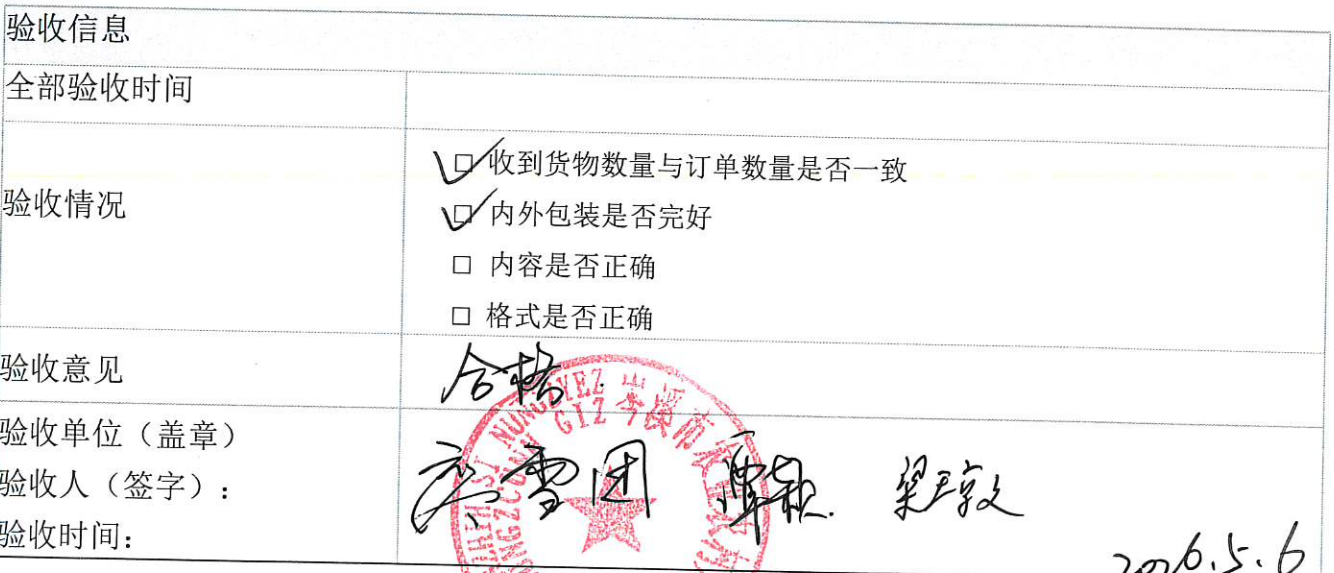 验收信息
全部验收时间
验收情况
□ 收到货物数量与订单数量是否一致
□ 内外包装是否完好
□ 内容是否正确
□ 格式是否正确
验收意见
合格.
验收单位（盖章）
岑溪市农业农村
验收人（签字）：
雪团
验收时间：
2026.5.6